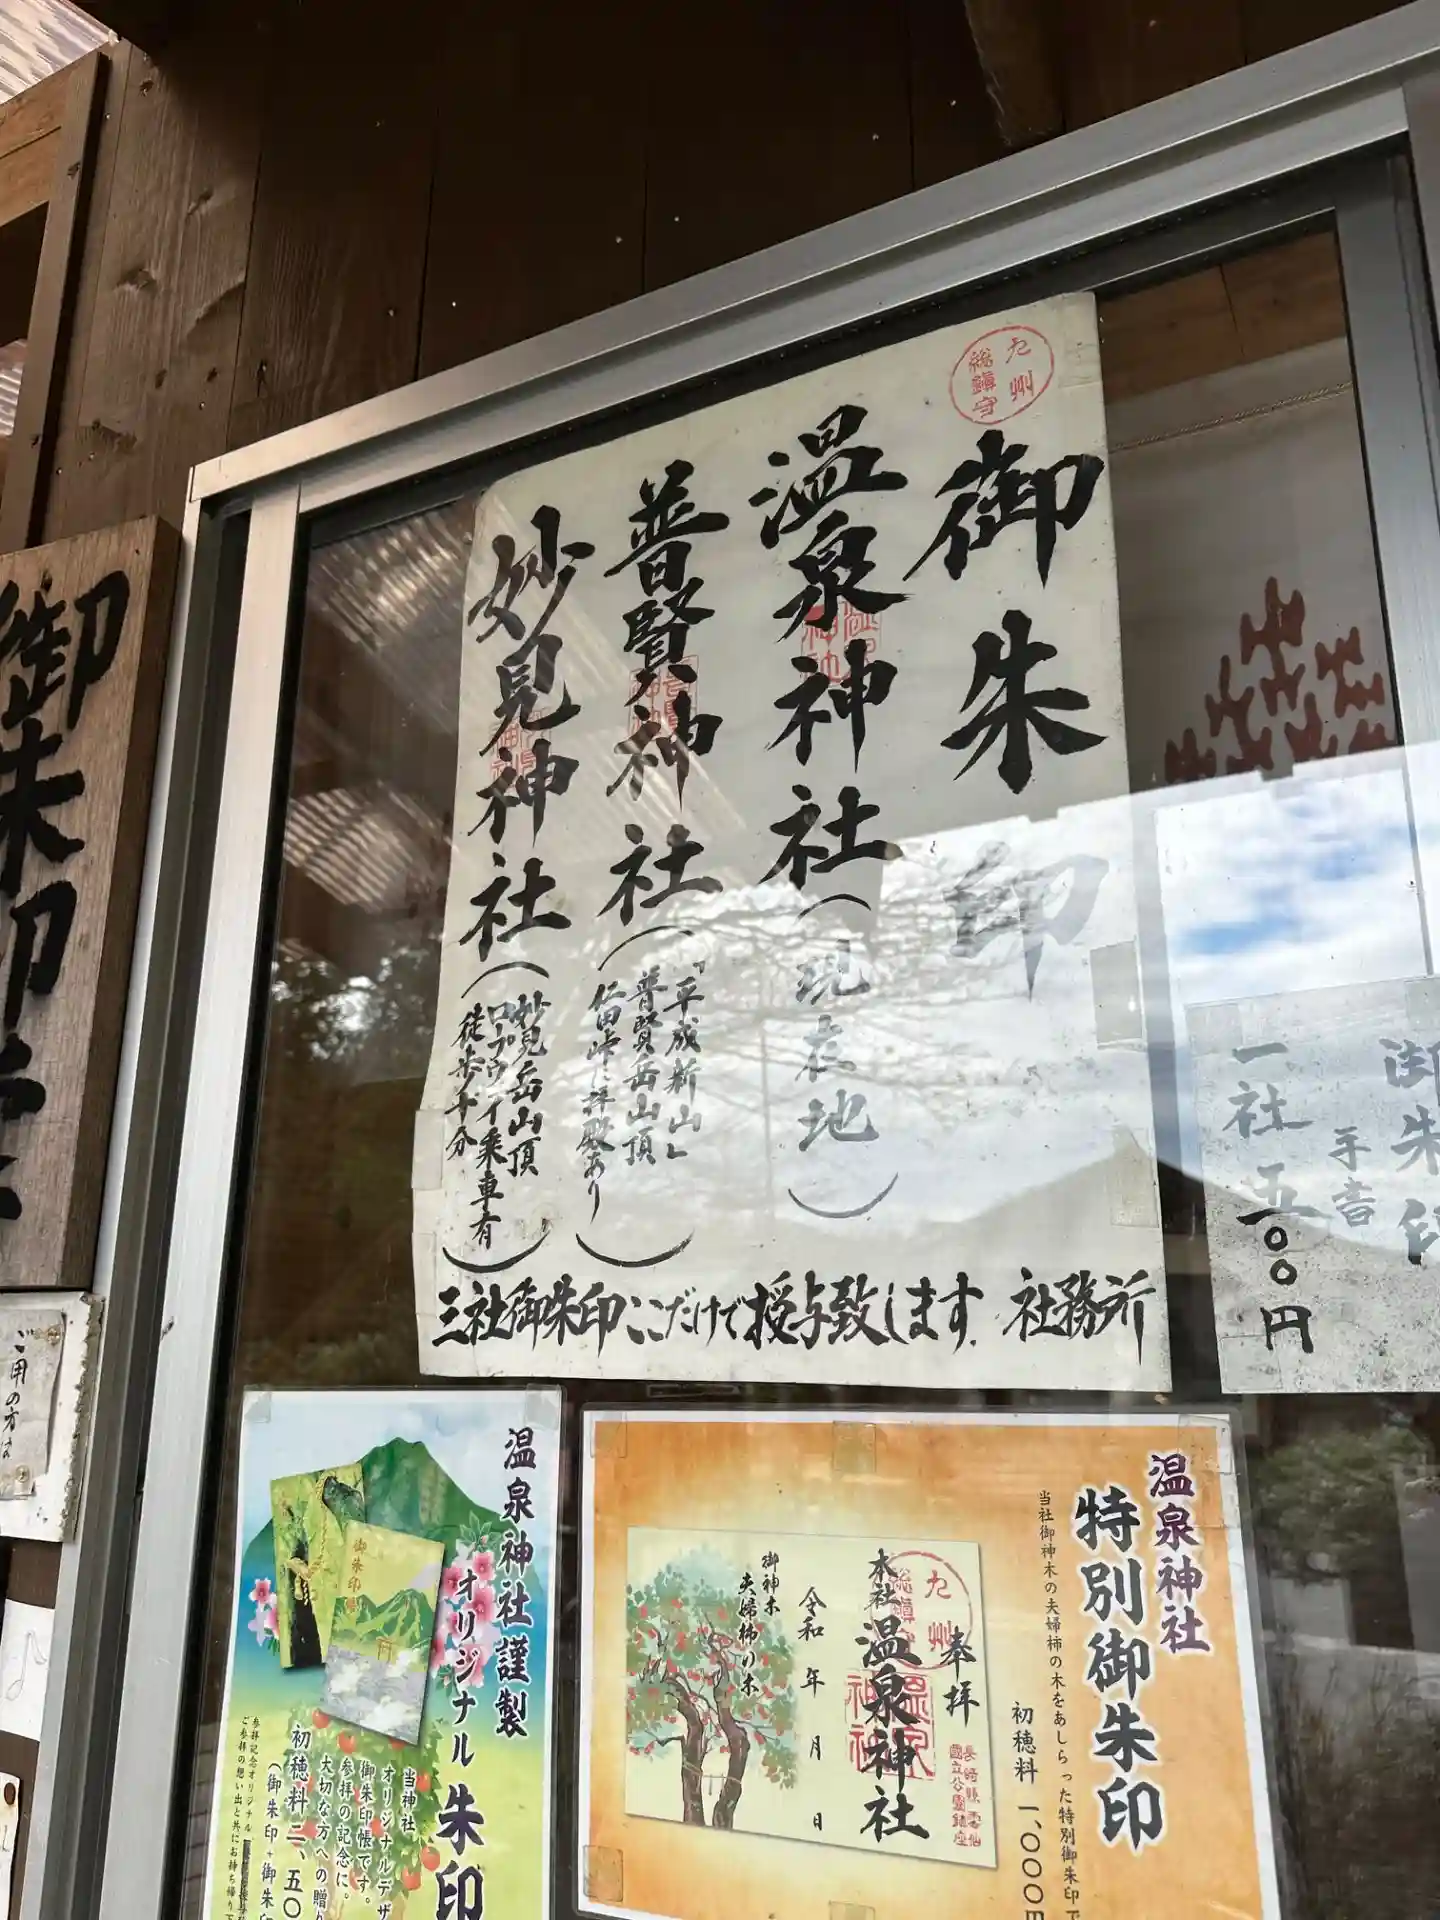 九州
総鎮守
御朱印
温泉神社(現在地)
普賢神社(「平成新山」
普賢岳山頂
仁田峠に拝殿あり)
妙見神社(妙見岳山頂
ロープウイ乗車有
徒歩十分)
三社御朱印ここだけで授与致します。社務所
御朱印
手書
一社 五〇〇円
御朱印
ご用の方は
温泉神社
特別御朱印
当社御神木の夫婦柿の木をあしらった特別御朱印で
初穂料 一、〇〇〇円
九州
奉拝
本社 温泉神社
令和 年 月 日
御神木
夫婦柿の木
長崎県雲仙
国立公園鎮座
温泉神社謹製
オリジナル朱印
御朱印帳
当神社
オリジナルデザ
御朱印帳です。
参拝の記念に。
大切な方への贈り
初穂料 二、五〇
(御朱印帳+御朱印
参拝記念オリジナル
ご参拝の想い出と共にお持ち帰り下